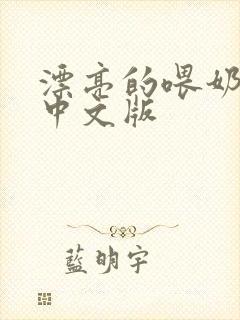 漂亮的喂奶
中文版
藍明宇